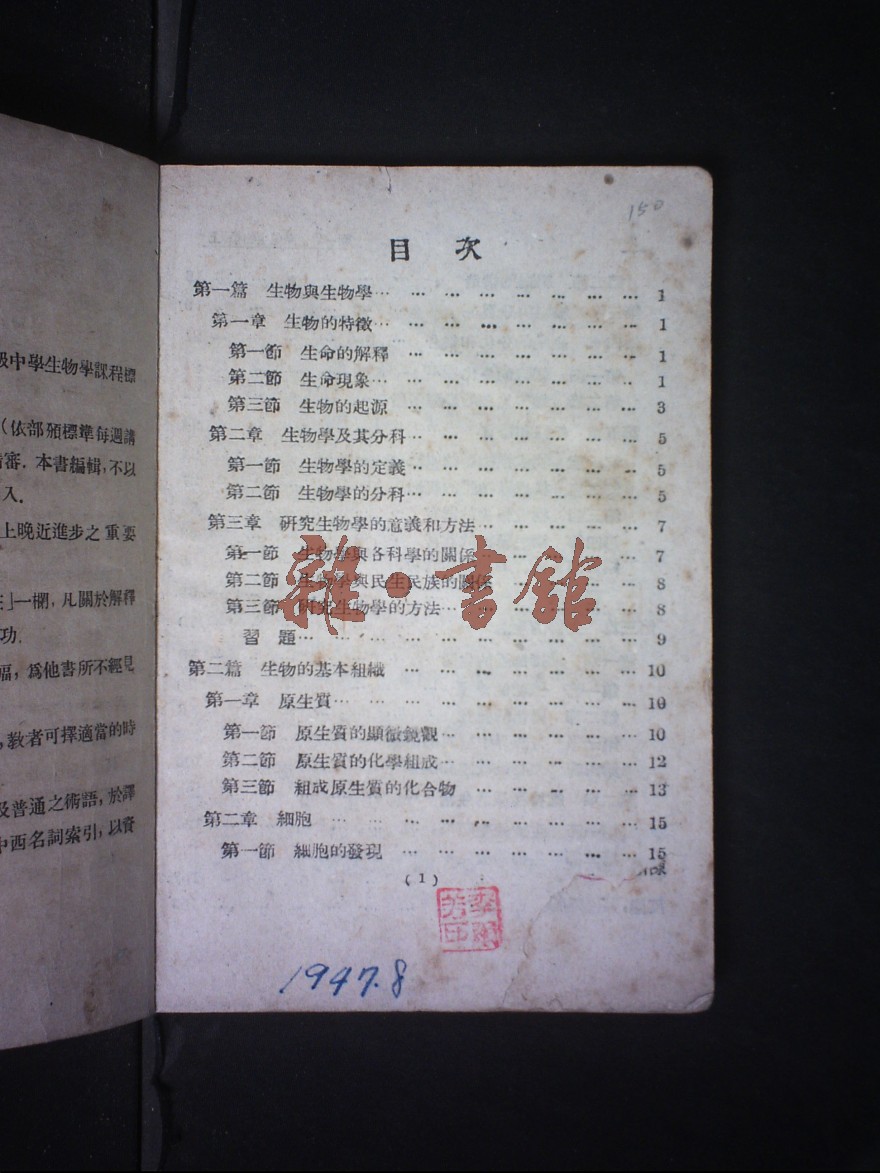 級中學生物學課程標
(依部頒標準每週講
審．本書編輯，不以
入．
上晚近進步之重要
」一欄，凡關於解釋
功．
幅，爲他書所不經見
，教者可擇適當的時
及普通之術語，於譯
中西名詞索引，以資
150
目 次
第一篇 生物與生物學… … … … … … … … 1
第一章 生物的特徵… … … … … … … … 1
第一節 生命的解釋 … … … … … … … 1
第二節 生命現象… … … … … … … … 1
第三節 生物的起源 … … … … … … … 3
第二章 生物學及其分科… … … … … … … 5
第一節 生物學的定義… … … … … … … 5
第二節 生物學的分科… … … … … … … 5
第三章 研究生物學的意義和方法… … … … … 7
第一節 生物學與各科學的關係 … … … … 7
第二節 生物學與民生民族的關係 … … … … 8
第三節 研究生物學的方法… … … … … … 8
習 題… … … … … … … … … 9
第二篇 生物的基本組織 … … … … … … … 10
第一章 原生質… … … … … … … … … 10
第一節 原生質的顯微鏡觀… … … … … … 10
第二節 原生質的化學組成… … … … … … 12
第三節 組成原生質的化合物 … … … … … 13
第二章 細胞 … … … … … … … … 15
第一節 細胞的發現 … … … … … … … 15
(1)
雜·書館
1947.8